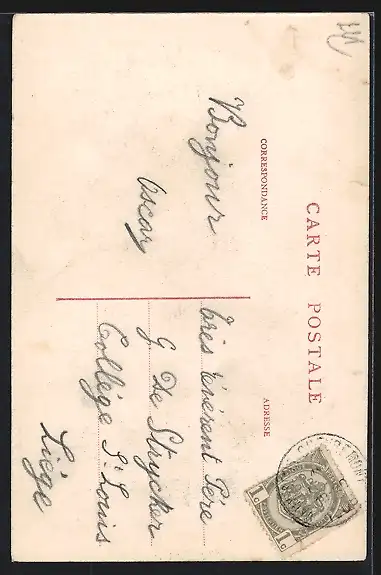 CARTE POSTALE
CORRESPONDANCE
ADRESSE
Bonjour
Oscar
Très révérent Père
G De Strycker
Collège St Louis
Liège
1c 1c